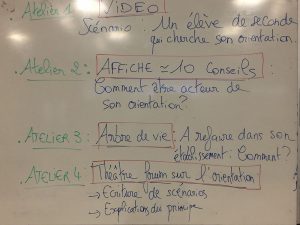 Atelier 1 : VIDEO
Scénario : Un élève de seconde
qui cherche son orientation.
. Atelier 2 : AFFICHE ≈ 10 Conseils :
Comment être acteur de
son orientation ?
. ATELIER 3 : Arbre de vie : A refaire dans son
établissement : Comment ?
. ATELIER 4 : Théâtre forum sur l'orientation
→ Ecriture de scénarios
→ Explications du principe